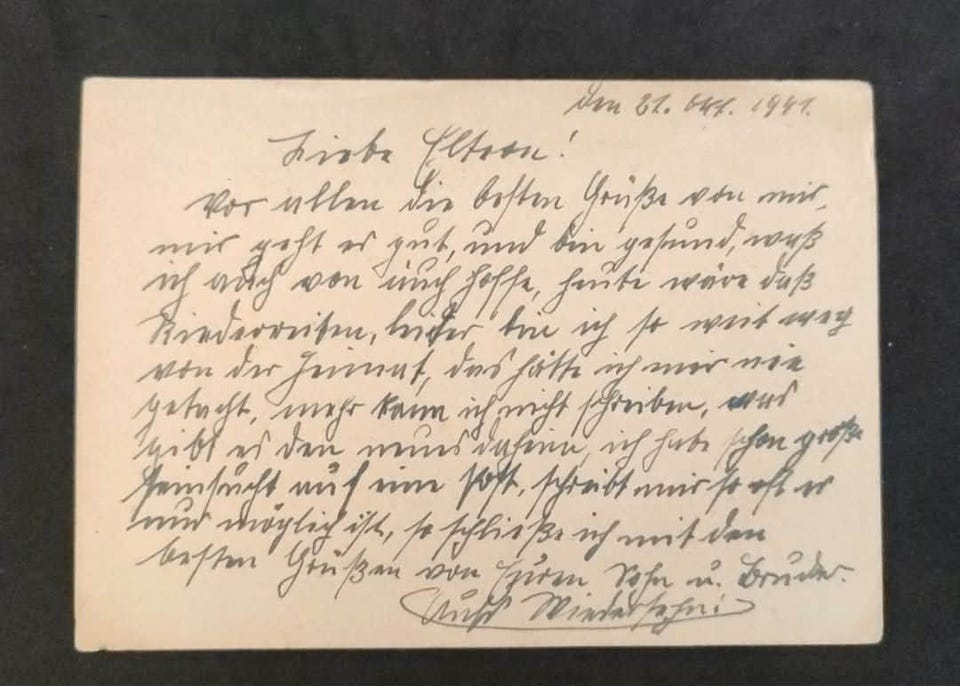 Den 21. Okt. 1941.
Liebe Eltern!
Vor allen die besten Grüße von mir,
mir geht es gut, und bin gesund, waß
ich auch von euch hoffe, heute wäre daß
leider bin ich so weit weg
von der Heimat, das hätte ich mir nie
gedacht, mehr kann ich nicht schreiben, was
gibt es den neues daheim, ich habe schon große
Sehnsucht auf eine Post, schreibt mir so oft es
nur möglich ist, so schließe ich mit den
besten Grüßen von Euren Sohn u. Bruder.
Aufs Wiedersehn!